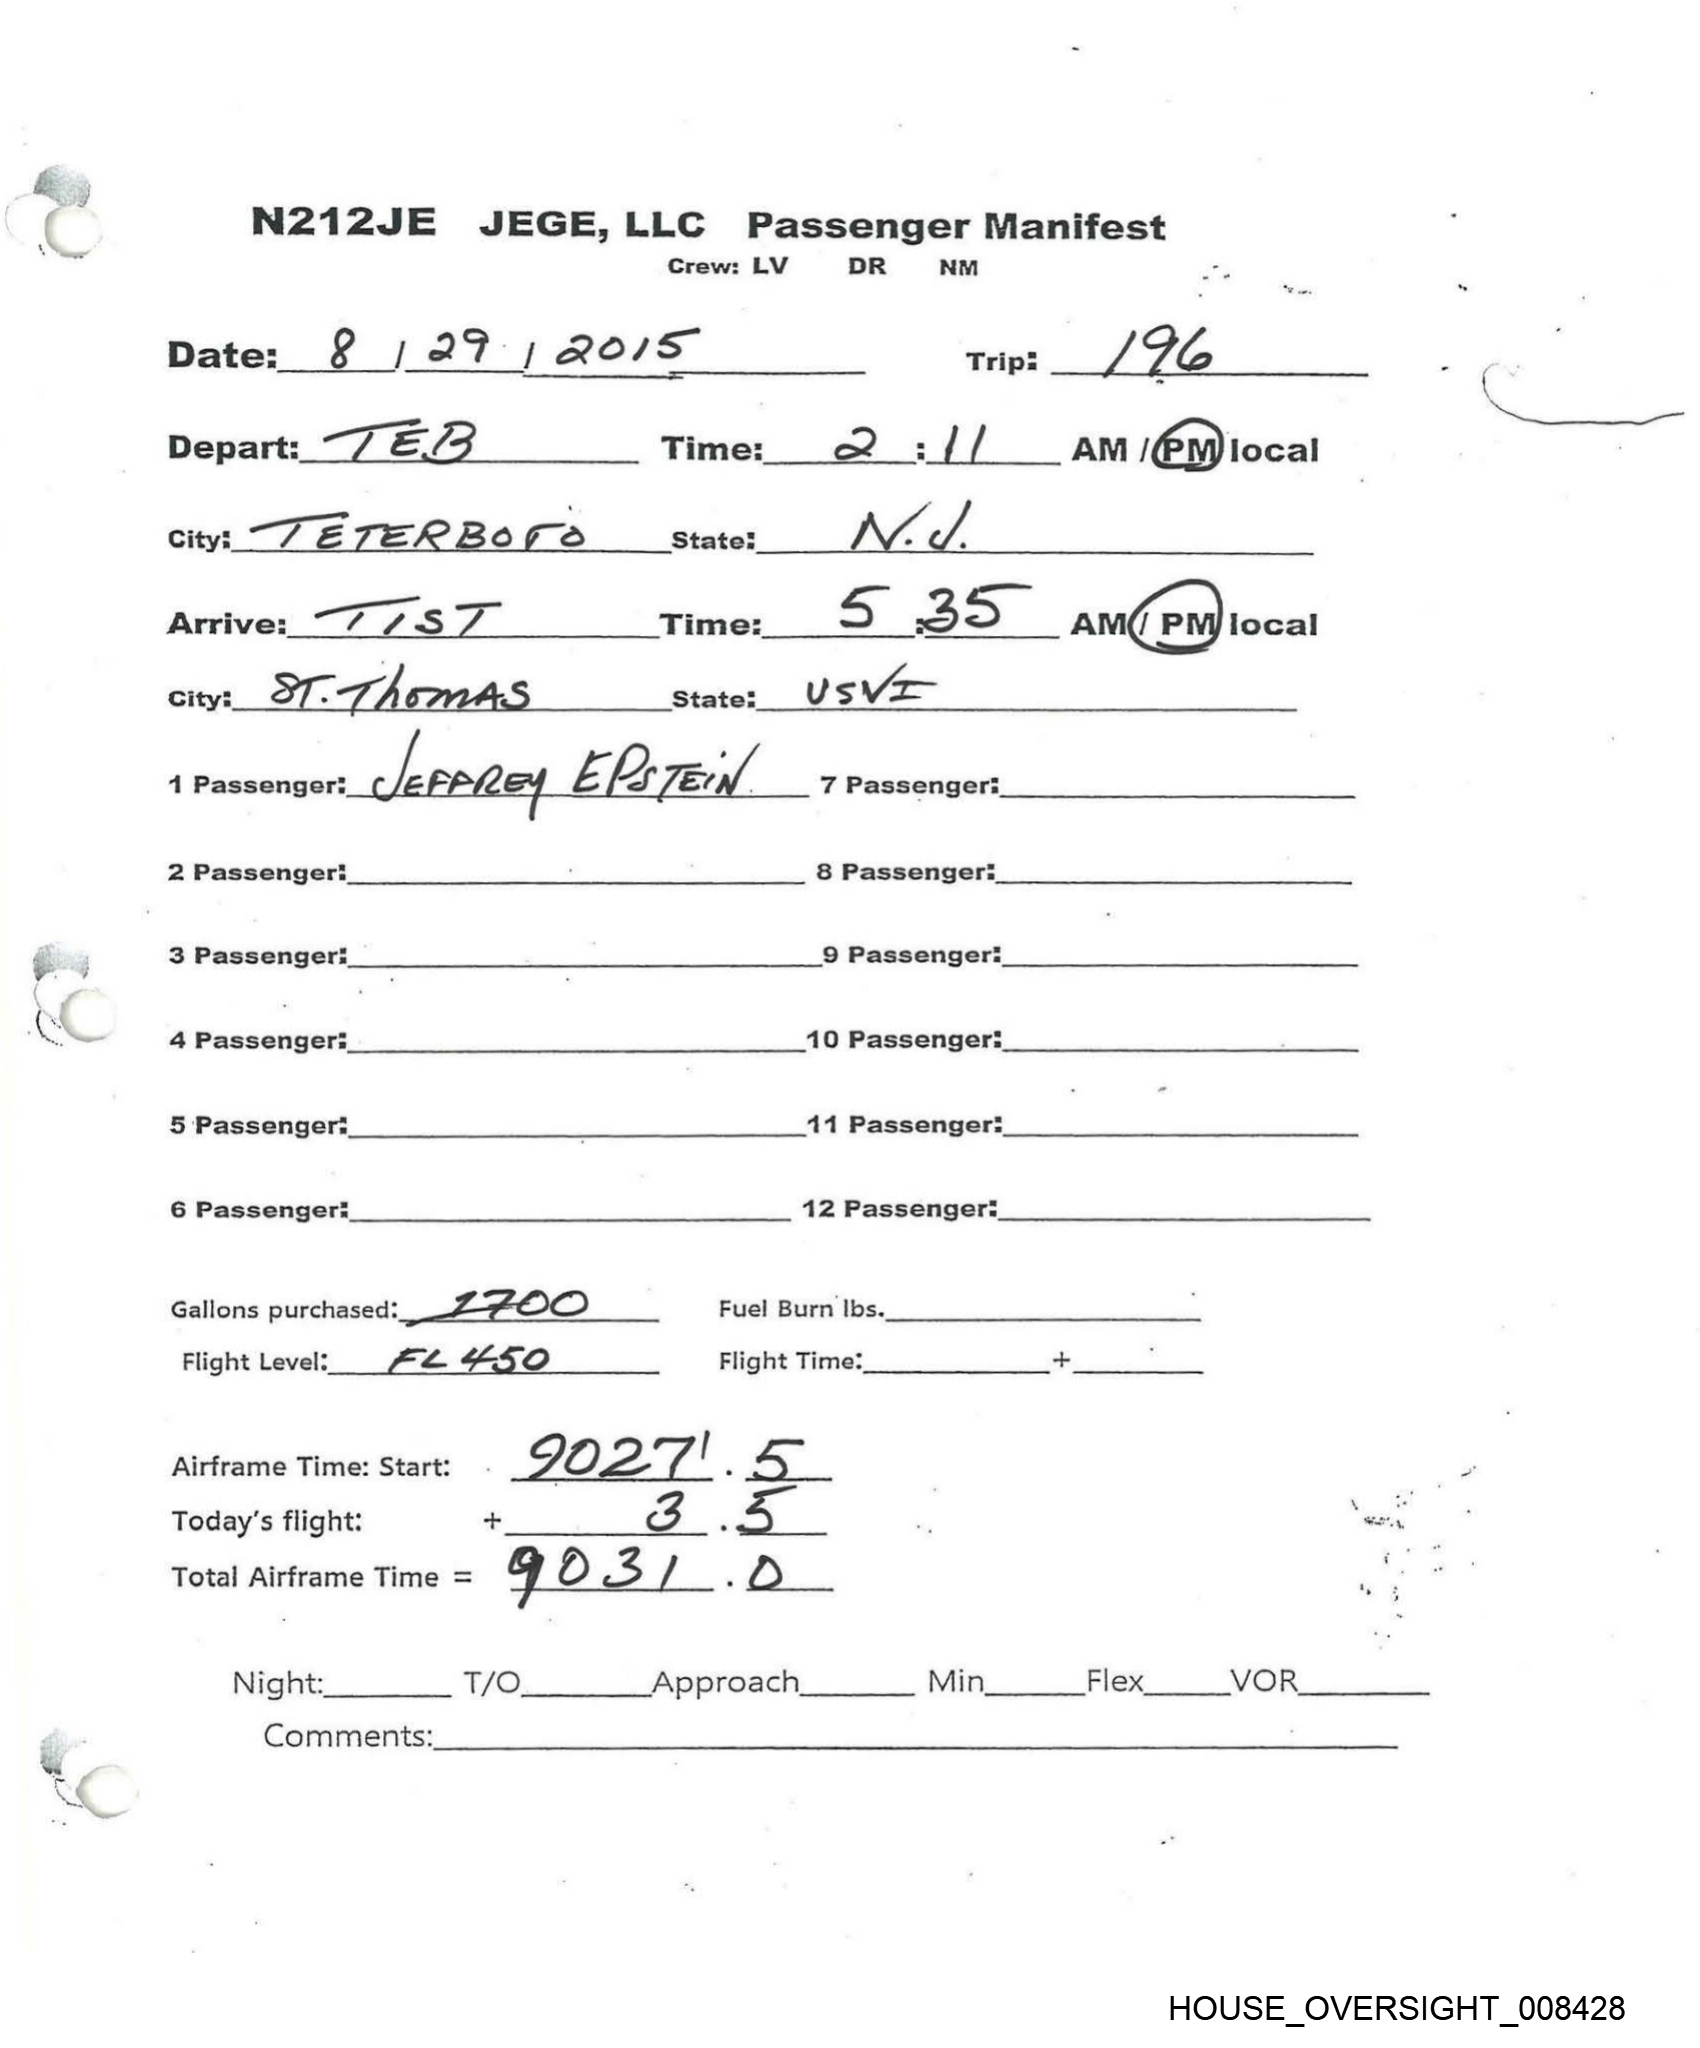 N212JE JEGE, LLC Passenger Manifest
Crew: LV DR NM
Date: 8 / 29 / 2015 Trip: 196
Depart: TEB Time: 2 : 11 AM / PM local
City: TETERBORO State: N.J.
Arrive: TIST Time: 5 : 35 AM / PM local
City: ST. THOMAS State: USVI
1 Passenger: JEFFREY EPSTEIN 7 Passenger:
2 Passenger: 8 Passenger:
3 Passenger: 9 Passenger:
4 Passenger: 10 Passenger:
5 Passenger: 11 Passenger:
6 Passenger: 12 Passenger:
Gallons purchased: 1700 Fuel Burn lbs.
Flight Level: FL 450 Flight Time: +
Airframe Time: Start: 9027 . 5
Today's flight: + 3 . 5
Total Airframe Time = 9031 . 0
Night: T/O Approach Min Flex VOR
Comments:
HOUSE_OVERSIGHT_008428